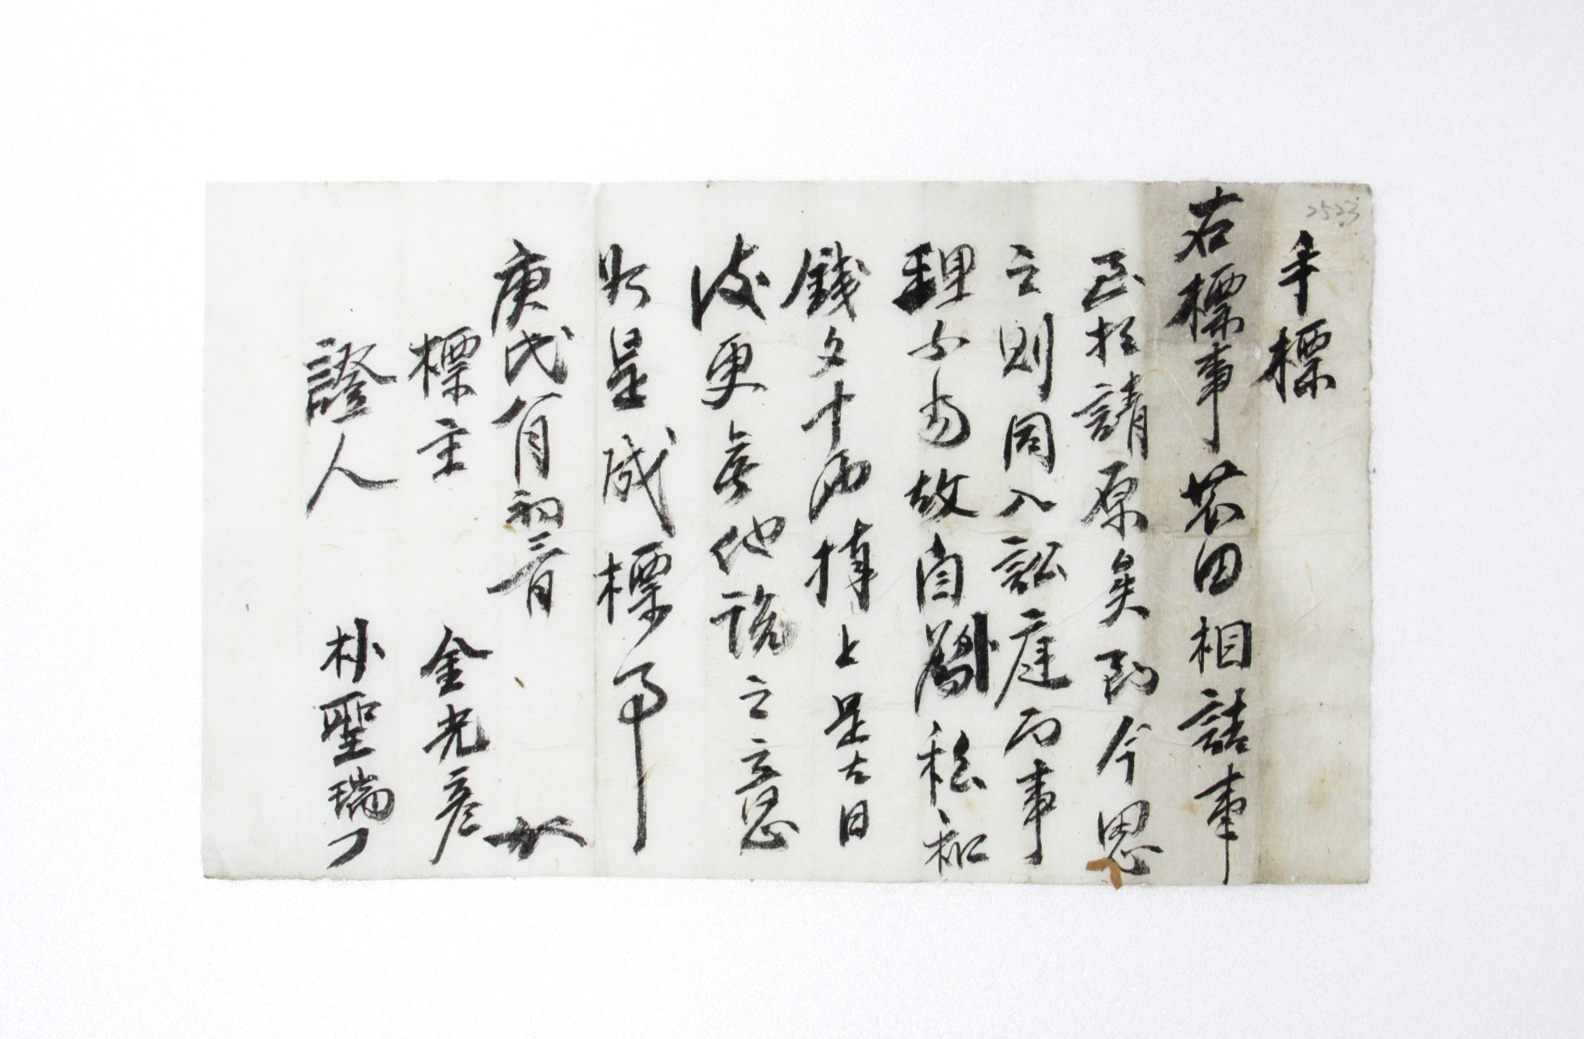 2523
手標
右標事農田相詰事
至於請原矣到今思
之則同入訟庭而事
理不當故自爲私和
錢文十両捧上是去日
後更無他說之意
如是成標事
庚戌八月初三日
標主 金光彦
證人 朴聖瑞